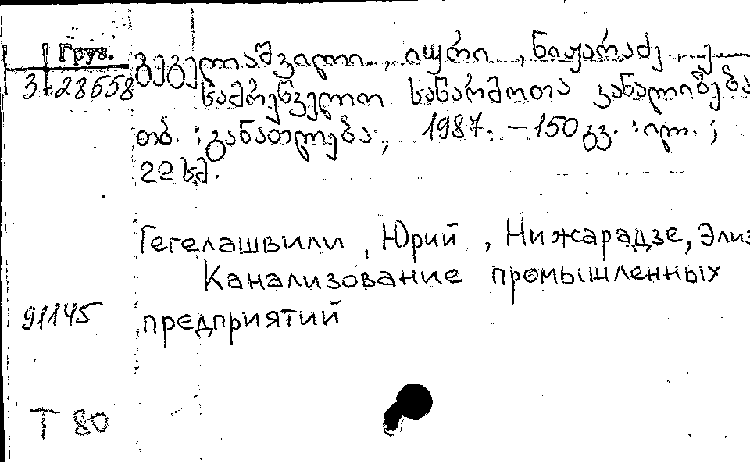 Груз.
3-28558
გეგელაშვილი, იური, ნიჟარაძე, ე
სამრეწველო საწარმოთა კანალიზება
თბ. : განათლება, 1987. – 150 გვ. : ილ. ;
22 სმ.
Гегелашвили, Юрий, Нижарадзе, Элиз
Канализование промышленных
91145 предприятий
Т 80